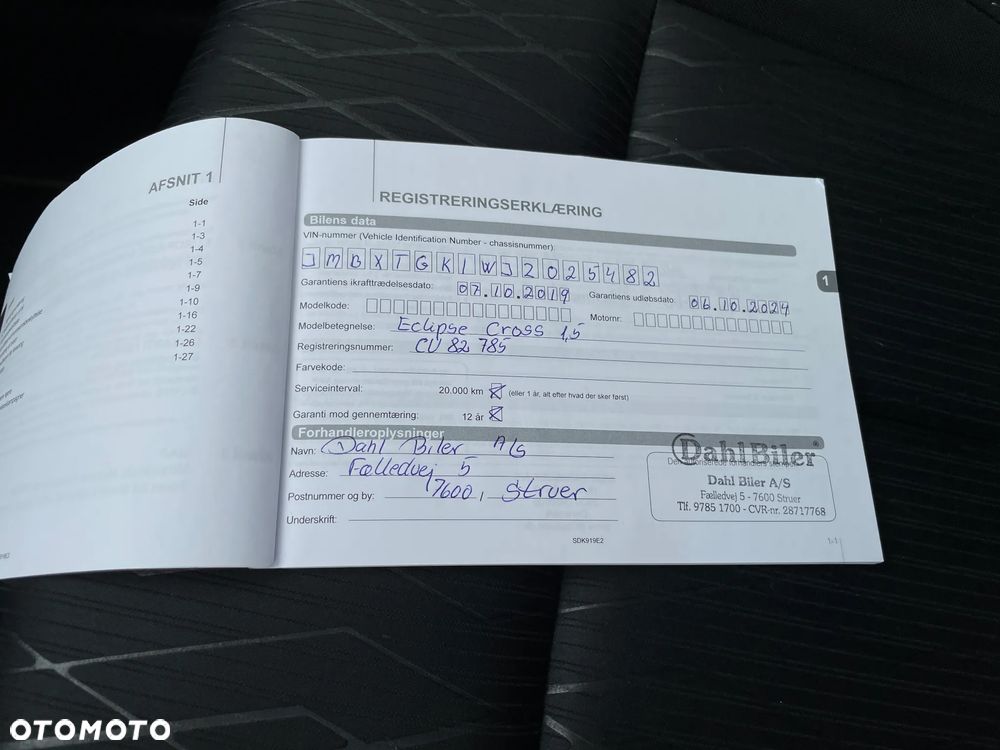 AFSNIT 1
Side
1-1
1-3
1-4
1-5
1-7
1-9
1-10
1-16
1-22
1-26
1-27
REGISTRERINGSERKLÆRING
Bilens data
VIN-nummer (Vehicle Identification Number - chassisnummer):
JMBXTGK1WJZ025482
Garantiens ikrafttrædelsesdato: 07.10.2019 Garantiens udløbsdato: 06.10.2024
Modelkode: Motornr:
Modelbetegnelse: Eclipse Cross 1,5
Registreringsnummer: CU 82 785
Farvekode:
Serviceinterval: 20.000 km (eller 1 år, alt efter hvad der sker først)
Garanti mod gennemtæring: 12 år
Forhandleroplysninger
Navn: Dahl Biler A/S
Adresse: Fælledvej 5
Postnummer og by: 7600, Struer
Underskrift:
Dahl Biler ®
Dahl Biler A/S
Fælledvej 5 - 7600 Struer
Tlf. 9785 1700 - CVR-nr. 28717768
SDK919E2
1-1
1
OTOMOTO